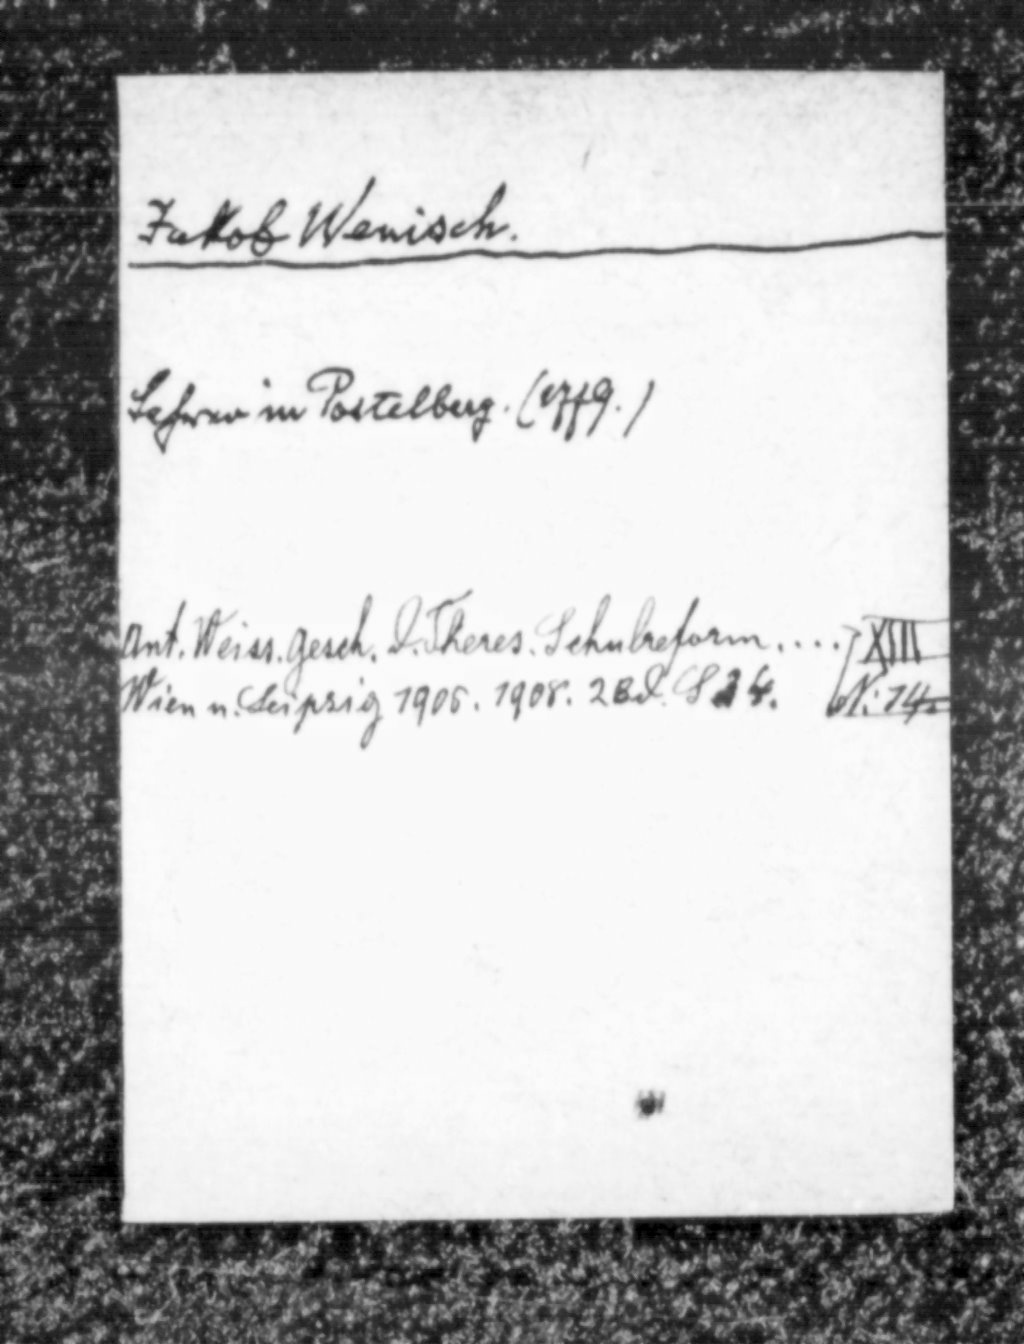 Jakob Wenisch.
Lehrer in Postelberg. (1779.)
Ant. Weiss. Gesch. d. Theres. Schulreform. . . . XIII
Wien u. Leipzig 1906. 1908. 2 Bd. S 24. N. 14.